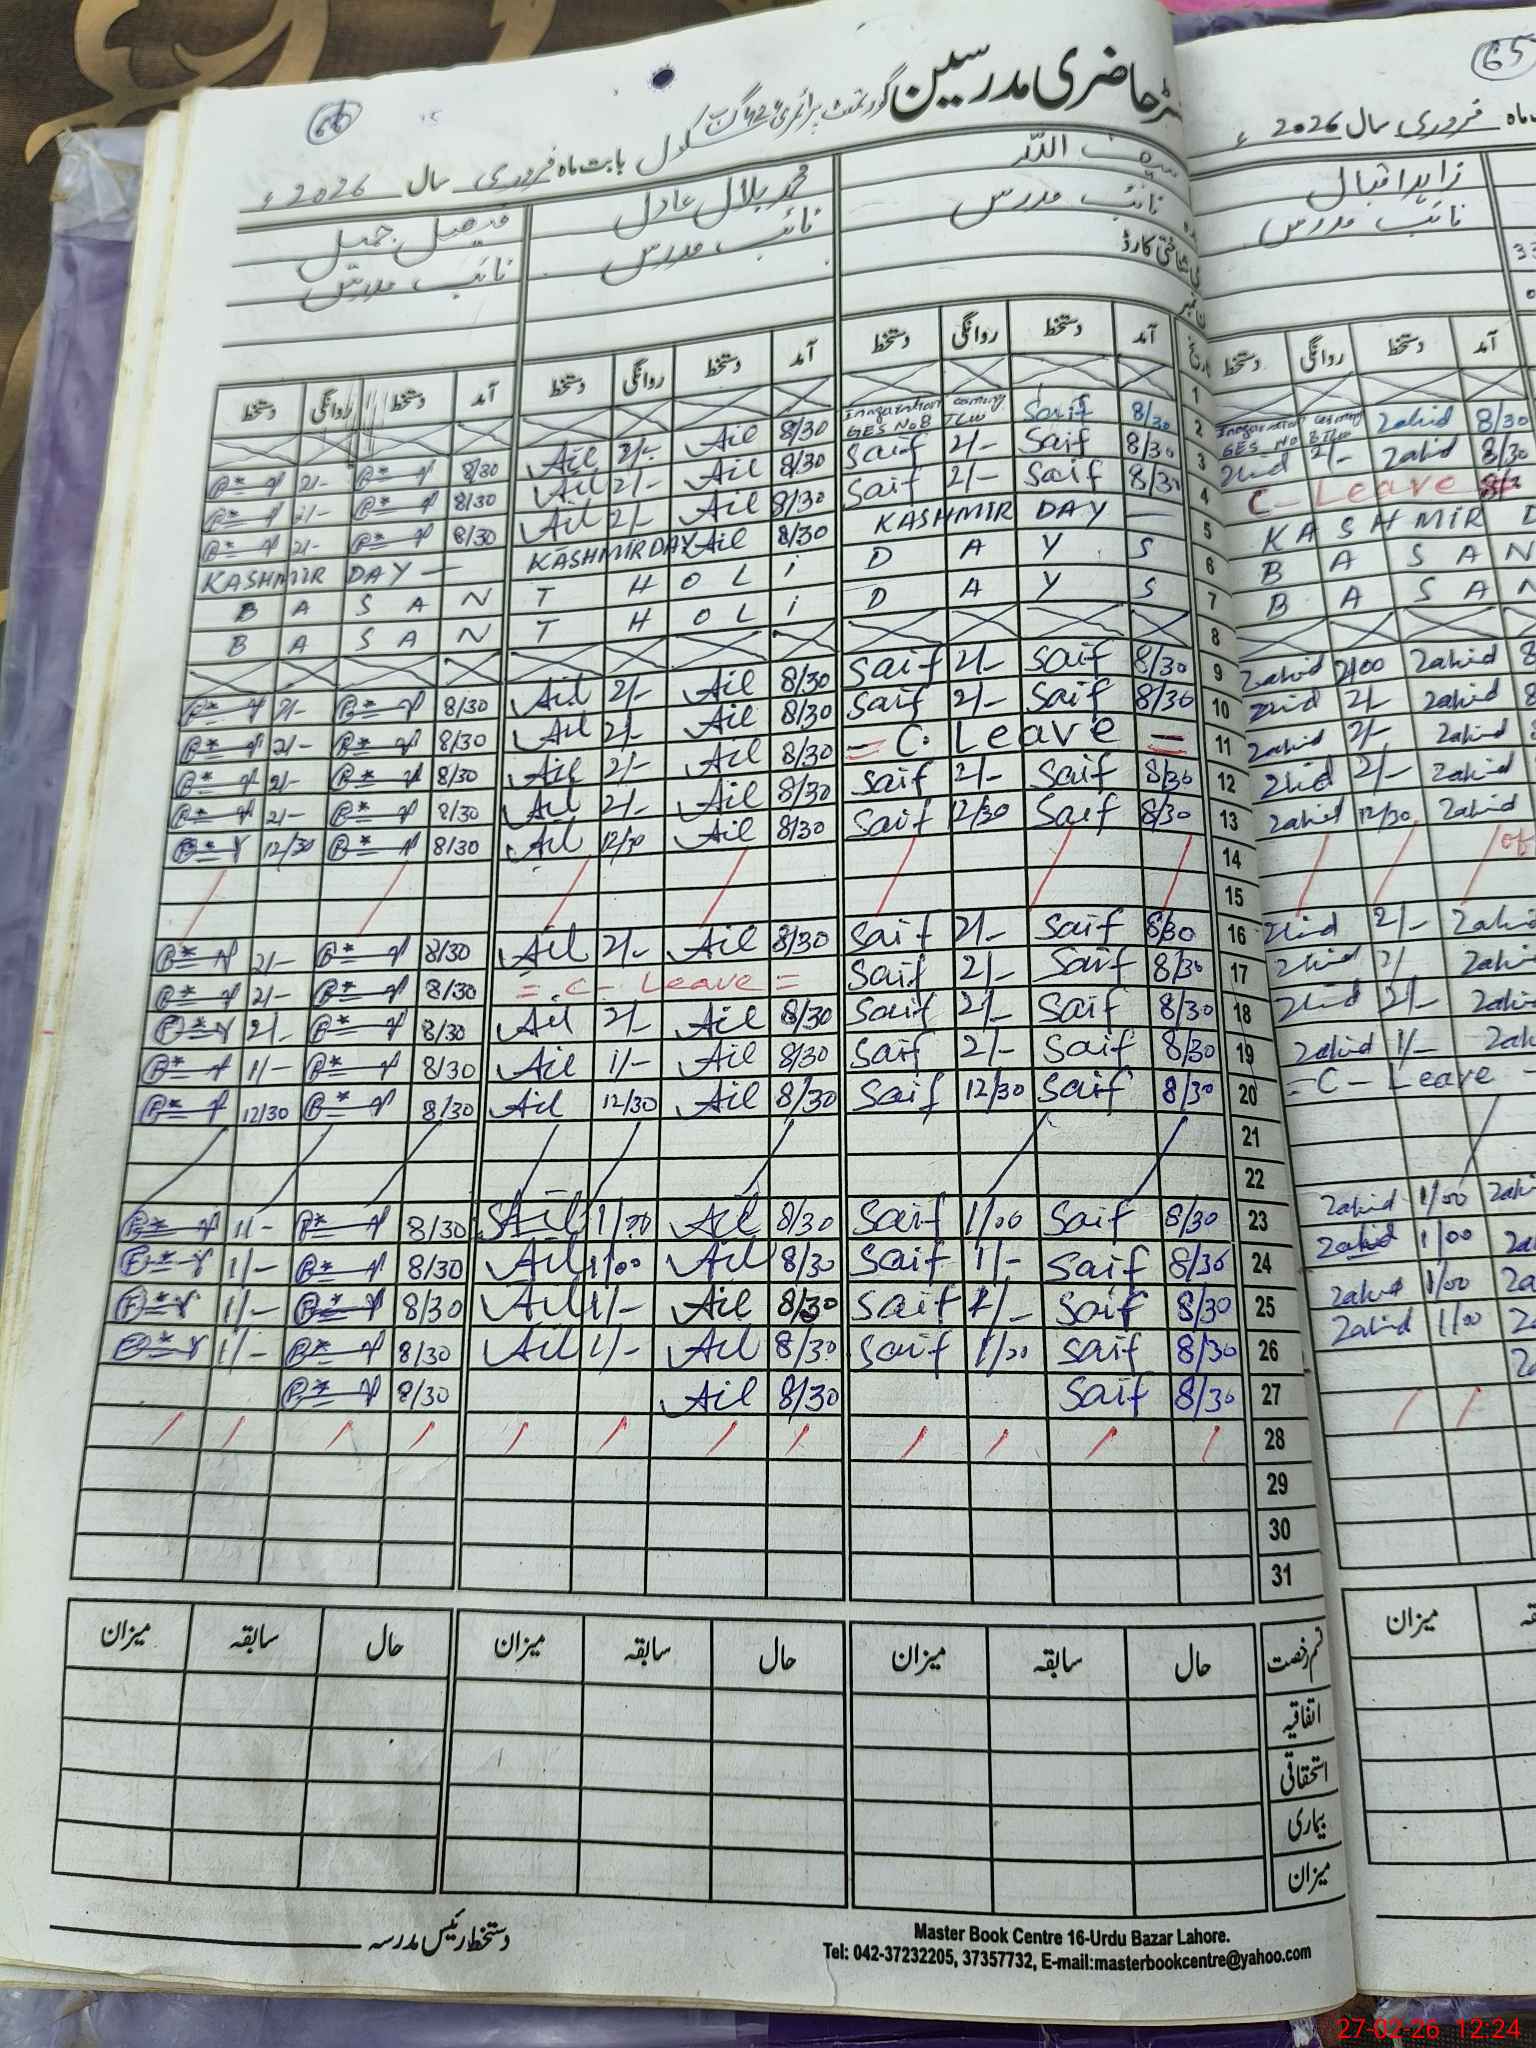 66
رجسٹر حاضری مدرسین گورنمنٹ پرائمری سکول
بابت ماہ فروری سال 2026ء
سیف اللہ
محمد بلال عادل
فیصل جمیل
نائب مدرس
نائب مدرس
نائب مدرس
شناختی کارڈ
تاریخ آمد دستخط روانگی دستخط آمد دستخط روانگی دستخط آمد دستخط روانگی دستخط
1
2 8/30 Saif GES No 8 8/30 Ail 2/- Ail 8/30 2/-
3 8/30 Saif 2/- Saif 8/30 Ail 2/- Ail 8/30 2/-
4 8/30 Saif 2/- Saif 8/30 Ail 2/- Ail 8/30 2/-
5 KASHMIR DAY — 8/30 Ail KASHMIR DAY KASHMIR DAY —
6 B A S A N T H O L i D A Y S
7 B A S A N T H O L i D A Y S
8
9 8/30 Saif 2/- Saif 8/30 Ail 2/- Ail 8/30 2/-
10 8/30 Saif 2/- Saif 8/30 Ail 2/- Ail 8/30 2/-
11 = C. Leave = 8/30 Ail 2/- Ail 8/30 2/-
12 8/30 Saif 2/- Saif 8/30 Ail 2/- Ail 8/30 2/-
13 8/30 Saif 12/30 Saif 8/30 Ail 12/30 Ail 8/30 12/30
14
15
16 8/30 Saif 2/- Saif 8/30 Ail 2/- Ail 8/30 2/-
17 8/30 Saif 2/- Saif = C- Leave = 8/30 2/-
18 8/30 Saif 2/- Saif 8/30 Ail 2/- Ail 8/30 2/-
19 8/30 Saif 2/- Saif 8/30 Ail 1/- Ail 8/30 1/-
20 8/30 Saif 12/30 Saif 8/30 Ail 12/30 Ail 8/30 12/30
21
22
23 8/30 Saif 1/00 Saif 8/30 Ail 1/00 Ail 8/30 1/-
24 8/30 Saif 1/- Saif 8/30 Ail 1/00 Ail 8/30 1/-
25 8/30 Saif 1/- Saif 8/30 Ail 1/- Ail 8/30 1/-
26 8/30 Saif 1/00 Saif 8/30 Ail 1/- Ail 8/30 1/-
27 8/30 Saif 8/30 Ail 8/30
28
29
30
31
قسم رخصت حال سابقہ میزان حال سابقہ میزان حال سابقہ میزان
اتفاقیہ
استحقاقی
بیماری
میزان
دستخط رئیس مدرسہ
Master Book Centre 16-Urdu Bazar Lahore.
Tel: 042-37232205, 37357732, E-mail:masterbookcentre@yahoo.com
65
ماہ فروری سال 2026ء
زاہد اقبال
نائب مدرس
آمد دستخط روانگی دستخط
8/30 Zahid GES No
8/30 Zahid 2/- Zahid
C- Leave
KASHMIR D
B A S A N
B A S A N
Zahid 2/00 Zahid
Zahid 2/- Zahid
Zahid 2/- Zahid
Zahid 2/- Zahid
Zahid 12/30 Zahid
Zahid 2/- Zahid
Zahid 2/ Zahid
Zahid 2/- Zahid
Zahid 1/- Zah
= C- Leave -
Zahid 1/00 Zahi
Zahid 1/00 Za
Zahid 1/00 Za
Zahid 1/00 Za
Za
میزان
27-02-26 12:24